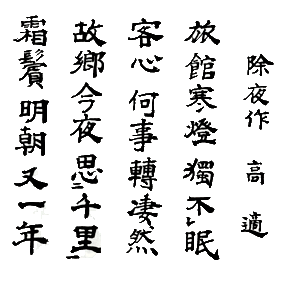 除夜作 高適
旅館寒燈獨不眠
客心何事轉凄然
故鄉今夜思千里
霜鬢明朝又一年